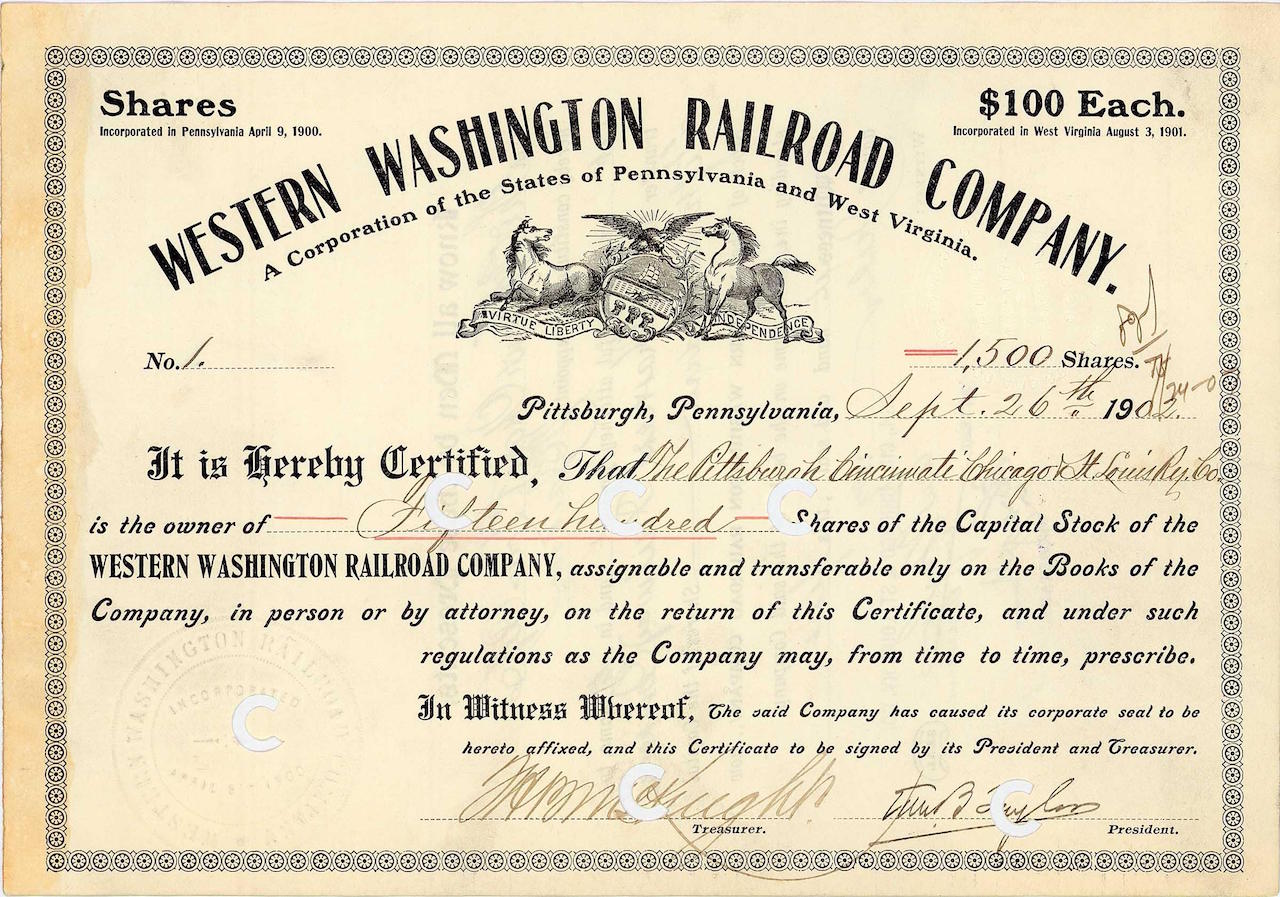 Shares
$100 Each.
Incorporated in Pennsylvania April 9, 1900.
Incorporated in West Virginia August 3, 1901.
WESTERN WASHINGTON RAILROAD COMPANY.
A Corporation of the States of Pennsylvania and West Virginia.
VIRTUE LIBERTY INDEPENDENCE
No. 1.
1,500 Shares.
Pittsburgh, Pennsylvania, Sept. 26th 1902.
It is Hereby Certified, That The Pittsburgh Cincinnati Chicago & St Louis Ry. Co.
is the owner of Fifteen hundred Shares of the Capital Stock of the
WESTERN WASHINGTON RAILROAD COMPANY, assignable and transferable only on the Books of the
Company, in person or by attorney, on the return of this Certificate, and under such
regulations as the Company may, from time to time, prescribe.
In Witness Whereof, The said Company has caused its corporate seal to be
hereto affixed, and this Certificate to be signed by its President and Treasurer.
WESTERN WASHINGTON RAILROAD
INCORPORATED
Treasurer.
President.